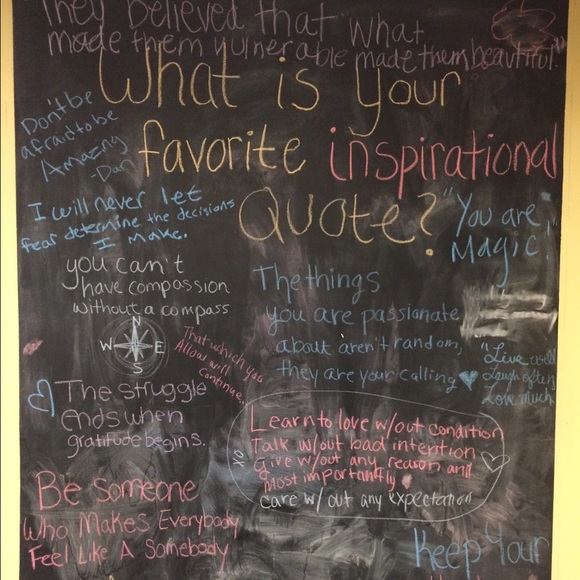 They believed that what
made them vulnerable made them beautiful."
What is your
favorite inspirational
Quote?
Don't be
afraid to be
Amazing
-Dan
I will never let
fear determine the decisions
I make.
"You are
Magic!"
you can't
have compassion
without a compass
N
W E
S
The things
you are passionate
about aren't random,
they are your calling
That which you
Allow will
continue
"Live well
Laugh often
Love much
The struggle
ends when
gratitude begins.
Learn to love w/out condition
Talk w/out bad intention
give w/out any reason and
most importantly
care w/out any expectation
XO
Be Someone
Who Makes Everybody
Feel Like A Somebody
Keep Your